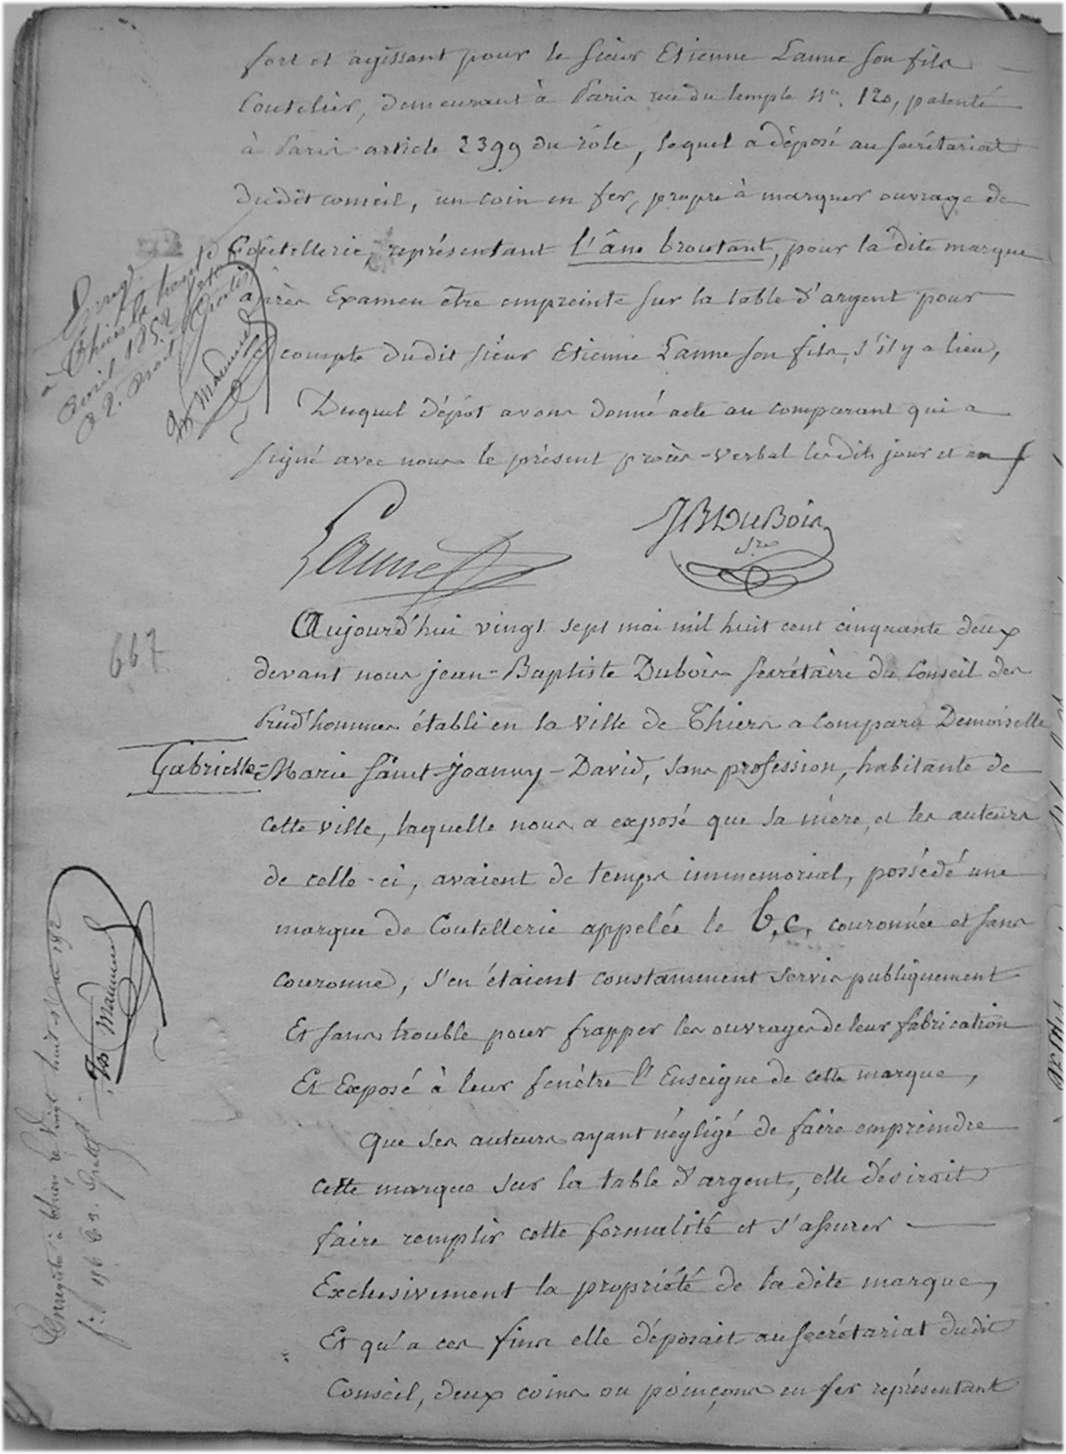 fort et agissant pour le sieur Etienne Lanne son fils
Coutelier, demeurant à Paris rue du temple No. 120, patenté
à Paris article 2399 du rôle, lequel a déposé au secrétariat
dudit conseil, un coin en fer, propre à marquer ouvrage de
Coutellerie, représentant l'âne broutant, pour la dite marque
après Examen être empreinte sur la table d'argent pour
le compte dudit sieur Etienne Lanne son fils, s'il y a lieu,
Duquel dépôt avons donné acte au comparant qui a
signé avec nous le présent procès-verbal lesdits jour et an
Lanne
JB DuBois
Sre
à Thiers le
avril 1852
667
Aujourd'hui vingt sept mai mil huit cent cinquante deux
devant nous jean-Baptiste Dubois secrétaire du Conseil des
Prud'hommes établi en la ville de Thiers a comparu Demoiselle
Gabrielle-Marie Sauret-Joanny-David, sans profession, habitante de
cette ville, laquelle nous a exposé que sa mère, et les auteurs
de celle-ci, avaient de temps immemorial, possédé une
marque de Coutellerie appelée le b,c, couronnée et sans
couronne, s'en étaient constamment servis publiquement
Et sans trouble pour frapper les ouvrages de leur fabrication
Et Exposé à leur fenêtre l'Enseigne de cette marque,
Que ses auteurs ayant négligé de faire empreindre
cette marque sur la table d'argent, elle désirait
faire remplir cette formalité et s'assurer
Exclusivement la propriété de la dite marque,
Et qu'a ces fins elle déposait au secrétariat dudit
Conseil, deux coins ou poinçons en fer représentant
Enregistré à thiers le vingt huit mai 1852